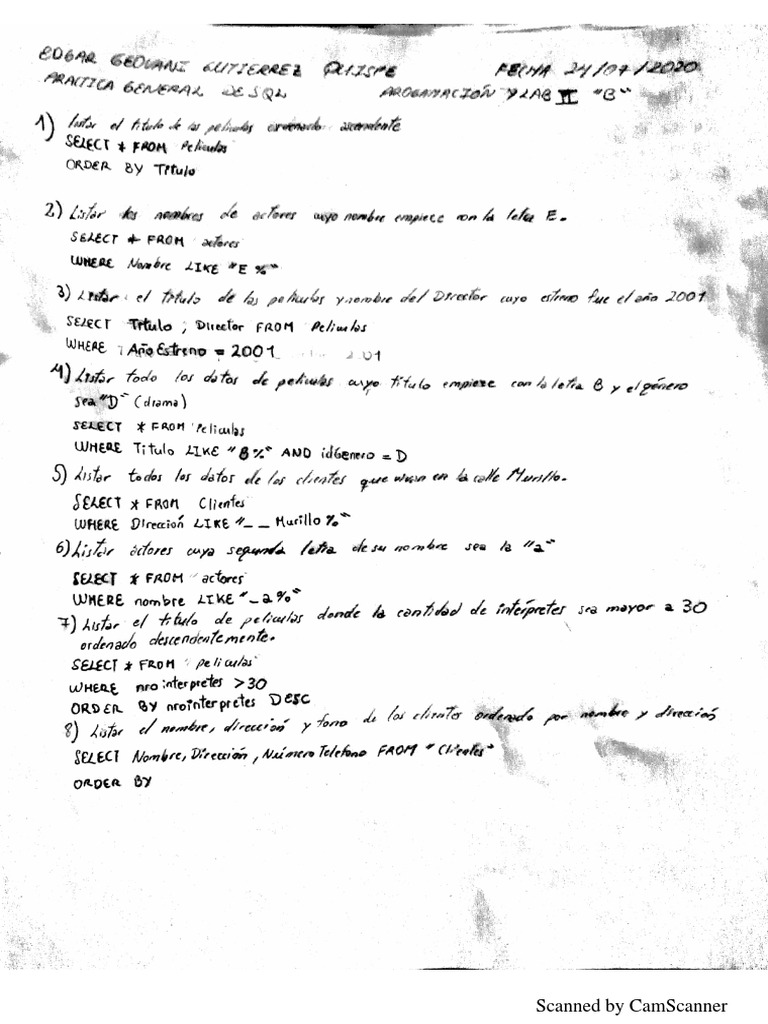 EDGAR GEOVANI GUTIERREZ QUISPE FECHA 24/07/2020
PRACTICA GENERAL DE SQL PROGAMACIÓN Y LAB II "B"
1) listar el titulo de las peliculas ordenado ascendente
SELECT * FROM Peliculas
ORDER BY Titulo
2) Listar los nombres de actores cuyo nombre empiece con la letra E.
SELECT * FROM actores
WHERE Nombre LIKE "E %"
3) Listar el titulo de las peliculas y nombre del Director cuyo estreno fue el año 2001
SELECT Titulo, Director FROM Peliculas
WHERE Año Estreno = 2001
4) Listar todo los datos de peliculas cuyo titulo empieze con la letra B y el género
sea "D" (drama)
SELECT * FROM Peliculas
WHERE Titulo LIKE "B%" AND idGenero = D
5) Listar todos los datos de los clientes que vivan en la calle Murillo.
SELECT * FROM Clientes
WHERE Dirección LIKE "_ _ Murillo %"
6) Listar actores cuya segunda letra de su nombre sea la "a"
SELECT * FROM "actores
WHERE nombre LIKE "_a%"
7) Listar el titulo de peliculas donde la cantidad de intérpretes sea mayor a 30
ordenado descendentemente.
SELECT * FROM "peliculas"
WHERE nro interpretes >30
ORDER BY nrointerpretes DESC
8) Listar el nombre, dirección y fono de los clientes ordenado por nombre y dirección
SELECT Nombre, Dirección, Número Telefono FROM "Clientes"
ORDER BY
Scanned by CamScanner